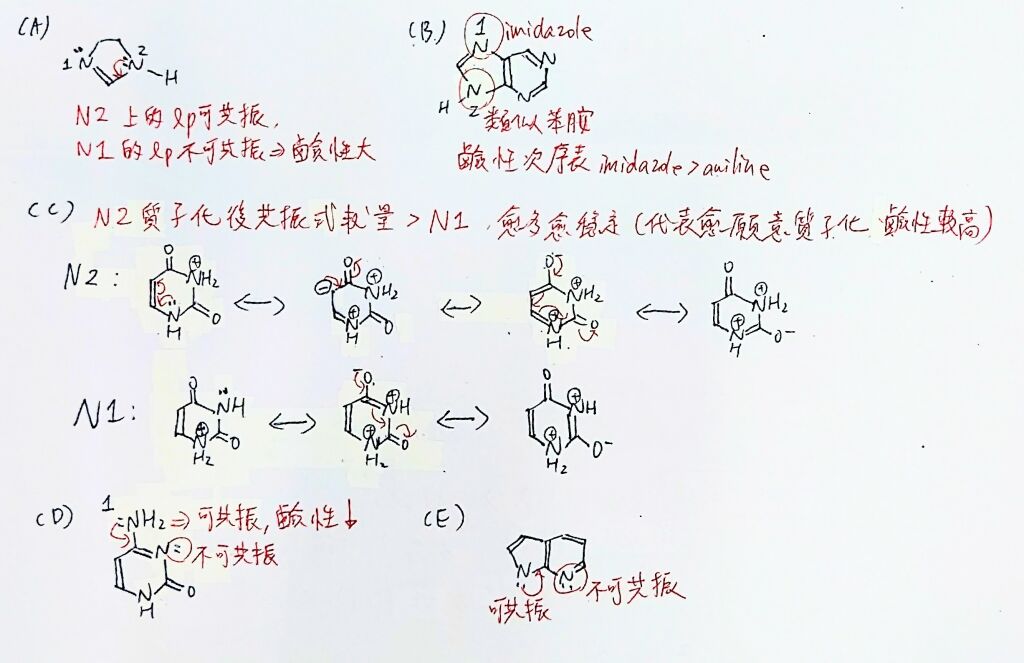 (A)
1 N 2 N-H
N2 上的 lp可共振,
N1 的 lp 不可共振⇒鹼性大
(B.) 1 imidazole
N N N
H N 2 類似苯胺
鹼性次序表 imidazole > aniline
(C) N2 質子化後共振式數量 > N1, 愈多愈穩定 (代表愈願意質子化 鹼性較高)
N2:
O ⊕NH₂ N H O ↔ ⊖ O ⊕NH₂ ⊕N H O ↔ O⁻ ⊕NH₂ ⊕N H O ↔ O ⊕NH₂ ⊕N H O⁻
N1:
O NH ⊕N H₂ O ↔ ⁻O ⊕NH ⊕N H₂ O ↔ O ⊕NH ⊕N H₂ O⁻
(D) 1 NH₂ ⇒ 可共振, 鹼性↓
N 不可共振
N H O
(E)
N N 不可共振
可共振